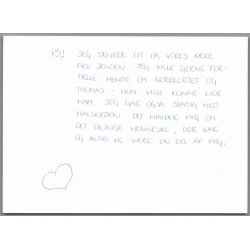 PS! JEG TÆNKER TIT PÅ VORES KÆRE
FRU JENSEN. JEG VILLE GERNE FOR-
TÆLLE HENDE OM KÆRLIGHED OG
THOMAS - HUN VILLE KUNNE LIDE
HAM. JEG GÅR OGSÅ STADIG MED
HALSKÆDEN. DET MINDER MIG OM
DET DEJLIGE MENNESKE, DER VAR
OG ALTID VIL VÆRE EN DEL AF MIG.